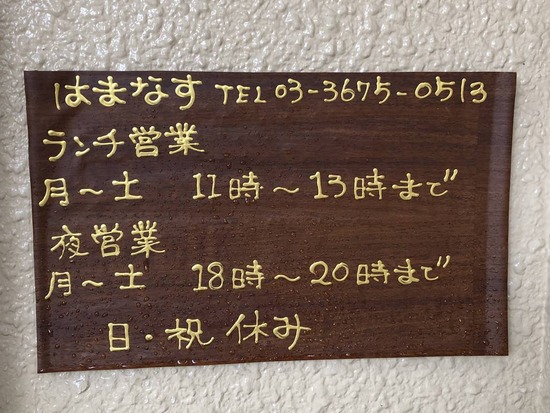 はまなす TEL 03-3675-0513
ランチ営業
月～土 11時～13時まで
夜営業
月～土 18時～20時まで
日・祝 休み